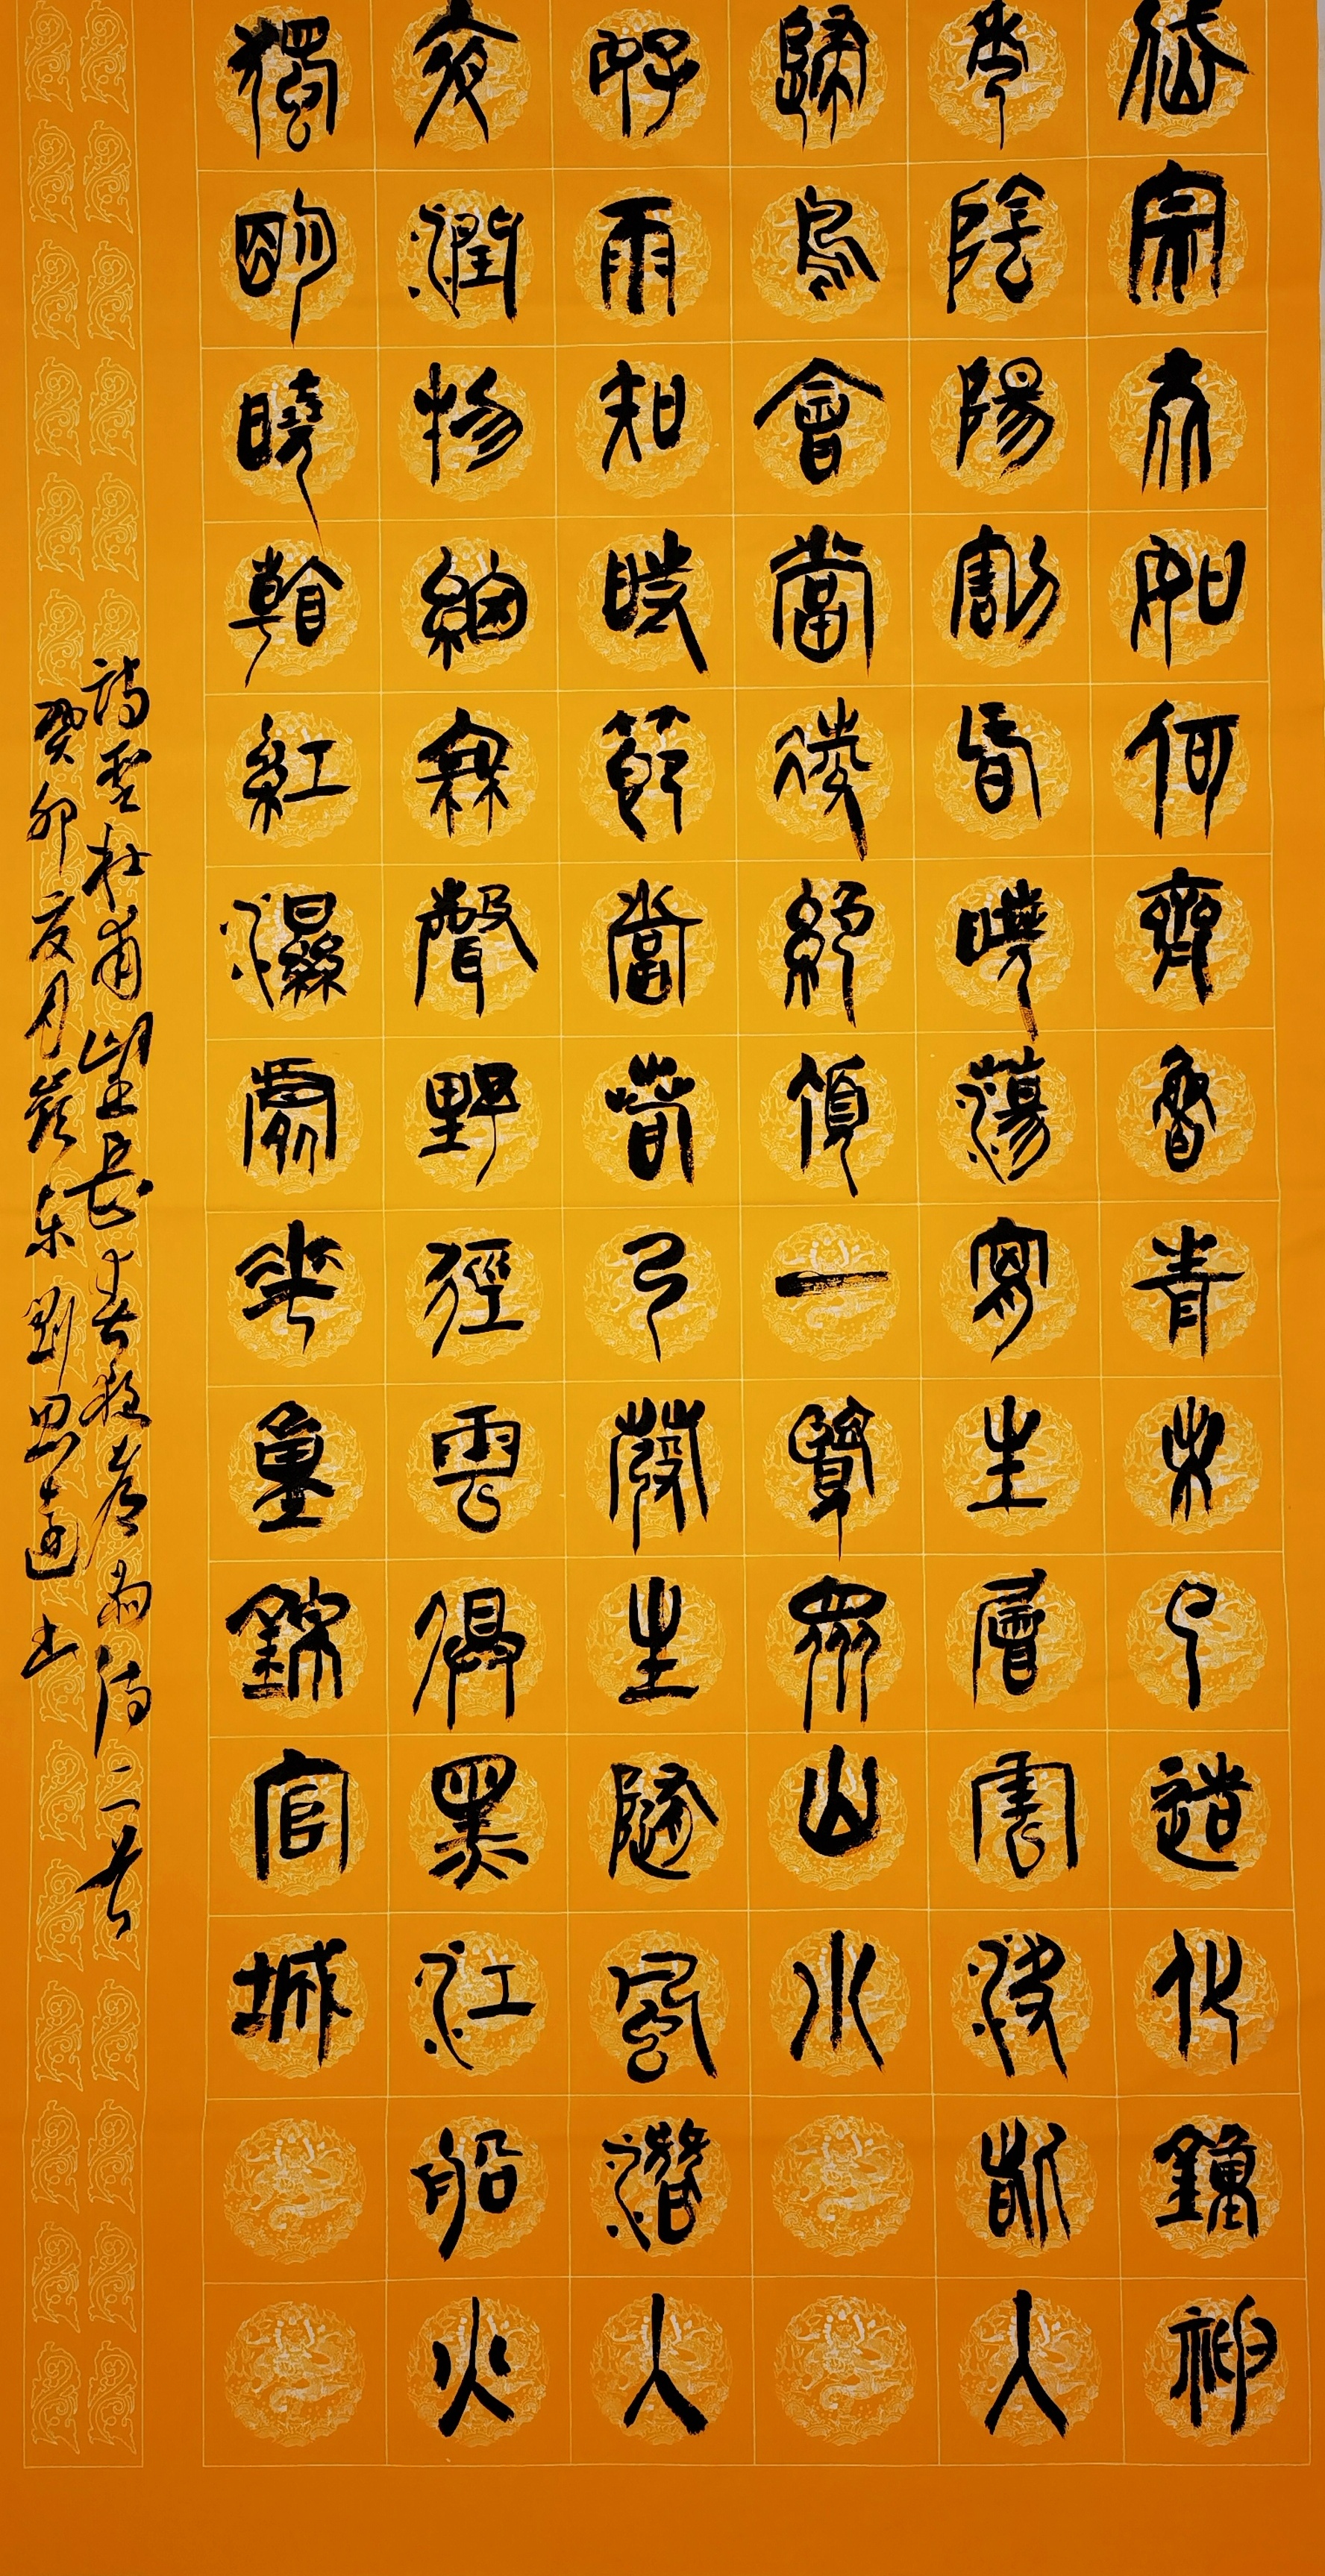 岱宗夫如何齊魯青未了造化鍾神
秀陰陽割昏曉蕩胸生層雲決眥入
歸鳥會當凌絕頂一覽眾山小
好雨知時節當春乃發生隨風潛入
夜潤物細無聲野徑雲俱黑江船火
獨明曉看紅濕處花重錦官城
詩聖杜甫望岳春夜喜雨詩二首
癸卯夏月 东劉思 书